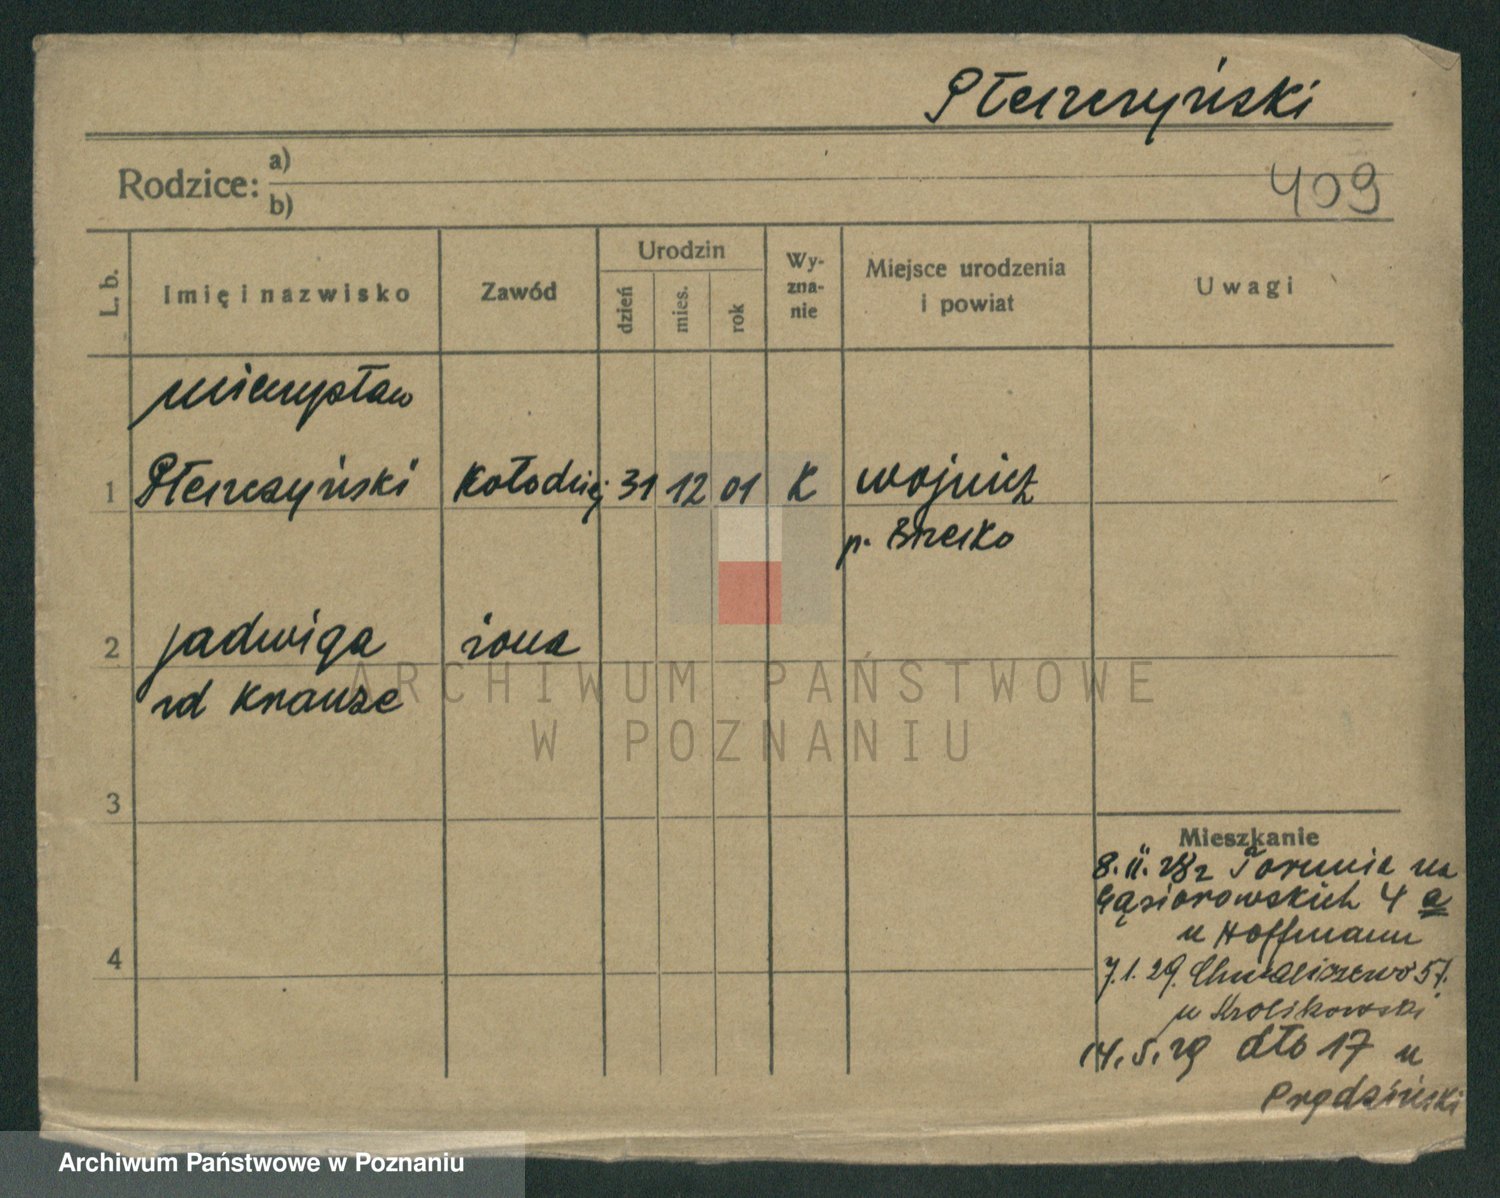 Płeszczyński
Rodzice: a)
b)
409
L. b.
Imię i nazwisko
Zawód
Urodzin
dzień
mies.
rok
Wy-
zna-
nie
Miejsce urodzenia
i powiat
Uwagi
Mieczysław
1 Płeszczyński Kołodziej 31 12 01 K Wojnicz
p. Brzesko
2 Jadwiga żona
zd Krauze
3
Mieszkanie
8.II.28 z Torunia na
Gąsiorowskich 4 a
u Hoffmann
4
7.1.29. Chwaliszewo 57.
u Krolikowski
14.5.29 dto 17 u
Prądziński
ARCHIWUM PAŃSTWOWE
W POZNANIU
Archiwum Państwowe w Poznaniu